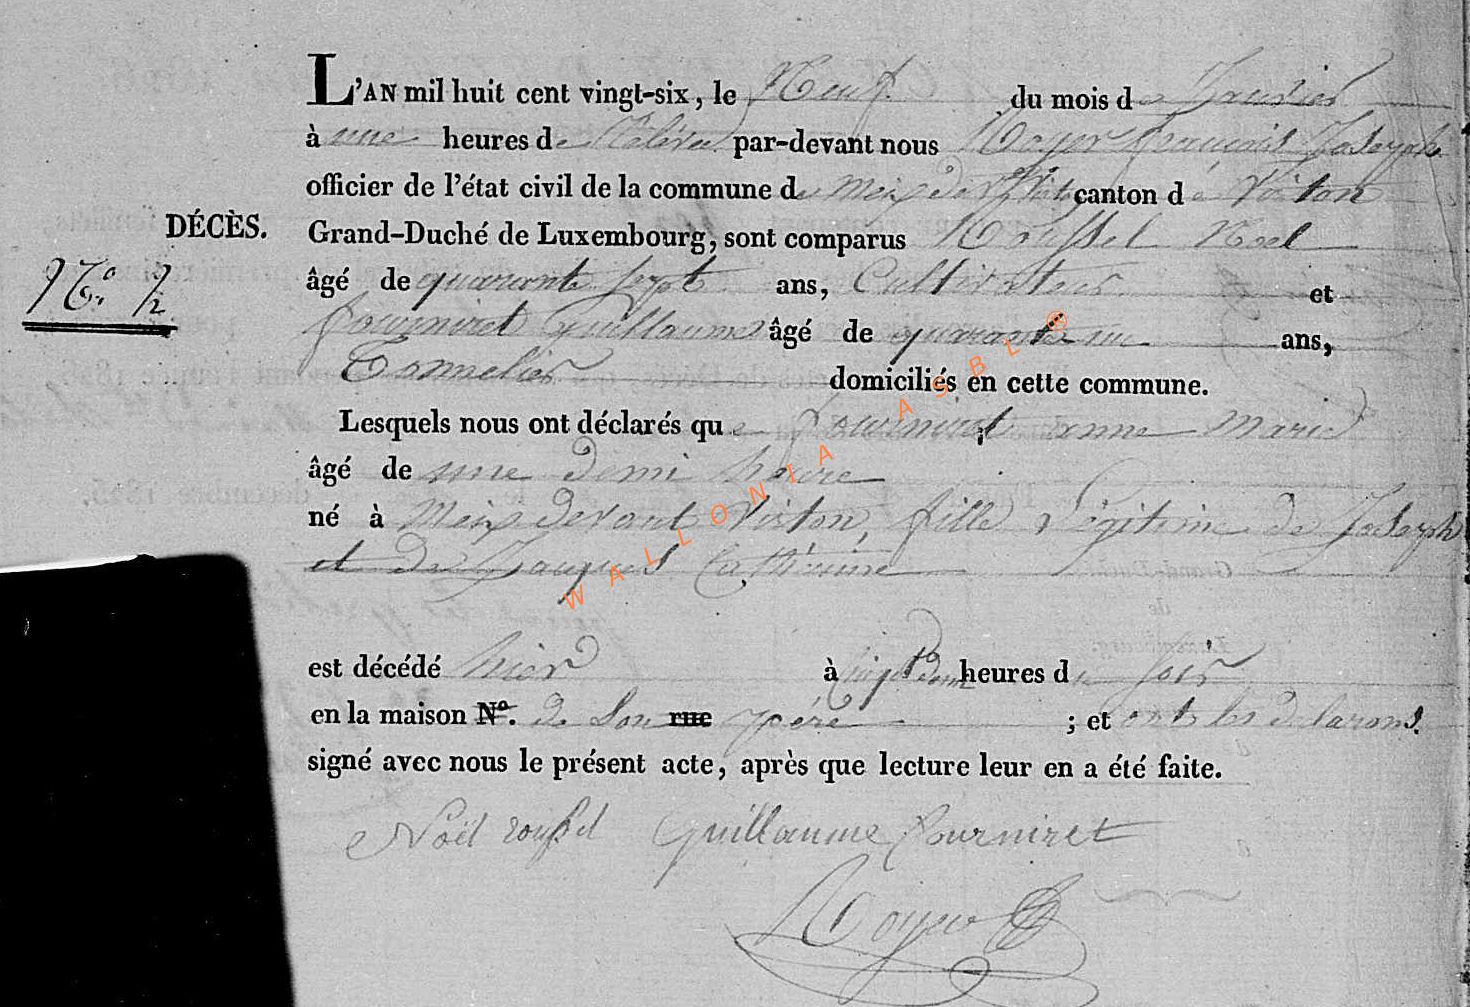 L'AN mil huit cent vingt-six, le Neuf du mois de Janvier
à une heures de Rélevée par-devant nous Royer françois Joseph
officier de l'état civil de la commune de Meix devant Virton canton de Virton
DÉCÈS.
Grand-Duché de Luxembourg, sont comparus Roussel Noel
N.º 2
âgé de quarante sept ans, Cultivateur et
fourniret Guillaume âgé de quarante un ans,
Tonnelier domiciliés en cette commune.
Lesquels nous ont déclarés que fourniret anne marie
âgé de une demi heure
né à Meix devant Virton, fille légitime de Joseph
et de Jacques Cathérine
est décédé hier à heures du soir
en la maison Nº. de Son rue pére ; et ont les déclarans
signé avec nous le présent acte, après que lecture leur en a été faite.
Noël roussel Guillaume fourniret
Royer
WALLONIA ASBL ®